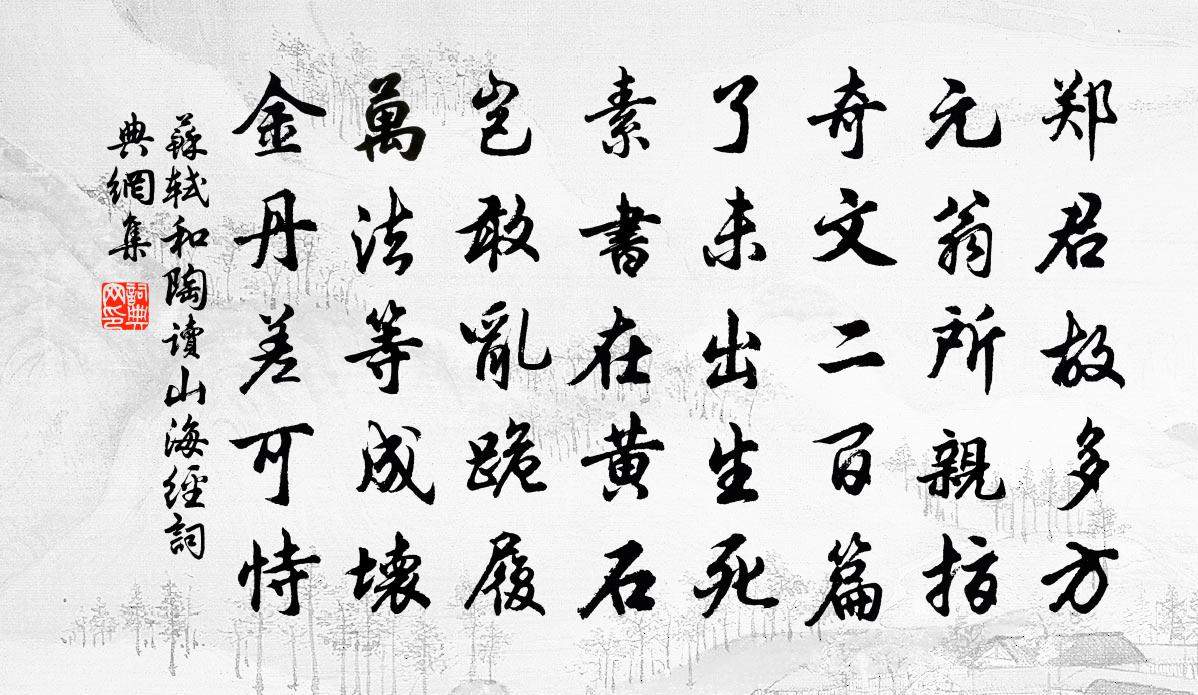 郑君故多方
元翁所親指
奇文二百篇
了未出生死
素書在黄石
豈敢亂跪履
萬法等成壊
金丹差可恃
蘇軾和陶讀山海經詞
典網集
詞典
网印